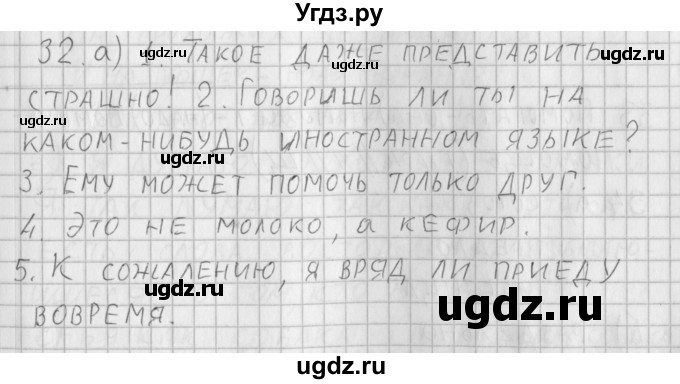 Угдз.ру
32. а) 1. Такое даже представить
страшно! 2. Говоришь ли ты на
каком-нибудь иностранном языке?
3. Ему может помочь только друг.
4. Это не молоко, а кефир.
5. К сожалению, я вряд ли приеду
вовремя.
ugdz.ru
ugdz.ru
ugdz.ru
ugdz.ru
ugdz.ru
ugdz.ru
ugdz.ru
ugdz.ru
ugdz.ru
ugdz.ru
ugdz.ru